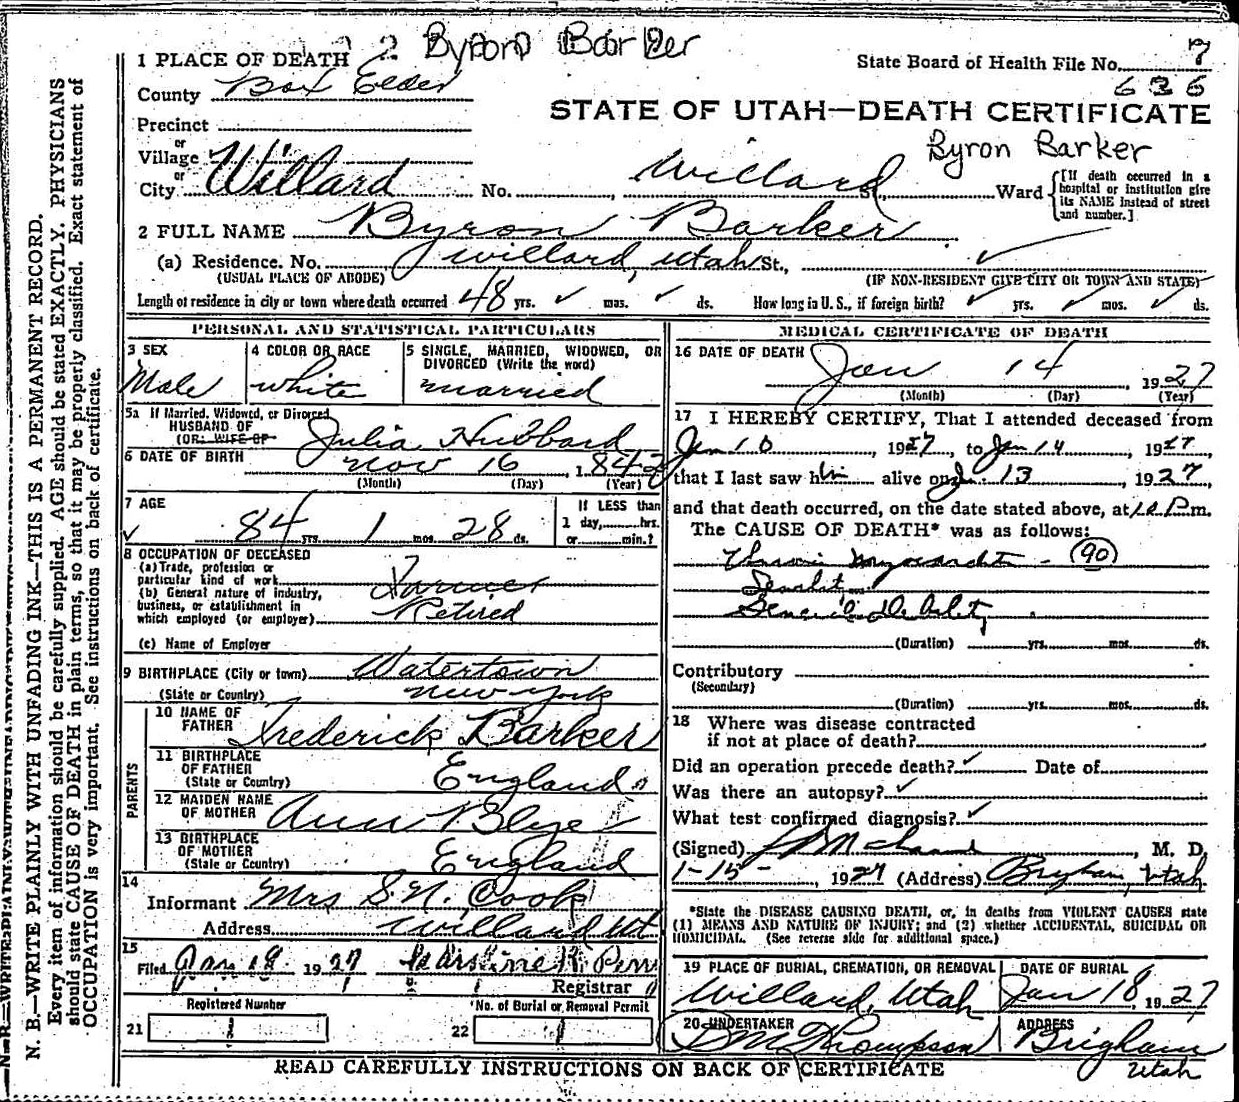 2 Byron Barker
1 PLACE OF DEATH
State Board of Health File No. 7
County Box Elder
636
STATE OF UTAH—DEATH CERTIFICATE
Precinct
Byron Barker
or
Village
or
City Willard No. Willard St., Ward
[If death occurred in a hospital or institution give its NAME instead of street and number.]
2 FULL NAME Byron Barker
(a) Residence. No. Willard, Utah St.,
(USUAL PLACE OF ABODE) (IF NON-RESIDENT GIVE CITY OR TOWN AND STATE)
Length of residence in city or town where death occurred 48 yrs. ✓ mos. ✓ ds. How long in U.S., if foreign birth? ✓ yrs. ✓ mos. ✓ ds.
PERSONAL AND STATISTICAL PARTICULARS
3 SEX
Male
4 COLOR OR RACE
white
5 SINGLE, MARRIED, WIDOWED, OR
DIVORCED (Write the word)
married
5a If Married, Widowed, or Divorced
HUSBAND OF
(OR: WIFE OF
Julia Hubbard
6 DATE OF BIRTH Nov 16 1842
(Month) (Day) (Year)
7 AGE
✓ 84 yrs. 1 mos. 28 ds.
If LESS than
1 day, hrs.
or min.?
8 OCCUPATION OF DECEASED
(a) Trade, profession or
particular kind of work Farmer
(b) General nature of industry,
business, or establishment in
which employed (or employer) Retired
(c) Name of Employer
9 BIRTHPLACE (City or town) Watertown
(State or Country) New York
PARENTS
10 NAME OF
FATHER Frederick Barker
11 BIRTHPLACE
OF FATHER
(State or Country) England
12 MAIDEN NAME
OF MOTHER Ann Blye
13 BIRTHPLACE
OF MOTHER
(State or Country) England
14
Informant Mrs S.N. Cook
Address Willard Ut
15
Filed Jan 18 1927
Registrar
Registered Number
21
No. of Burial or Removal Permit
22
MEDICAL CERTIFICATE OF DEATH
16 DATE OF DEATH Jan 14, 1927
(Month) (Day) (Year)
17 I HEREBY CERTIFY, That I attended deceased from
Jan 10 1927 to Jan 14 1927
that I last saw him alive on Jan. 13, 1927
and that death occurred, on the date stated above, at P.m.
The CAUSE OF DEATH* was as follows:
Chronic myocarditis - 90
Senility
(Duration) yrs. mos. ds.
Contributory
(Secondary)
(Duration) yrs. mos. ds.
18 Where was disease contracted
if not at place of death?
Did an operation precede death? ✓ Date of
Was there an autopsy? ✓
What test confirmed diagnosis? ✓
(Signed) , M. D.
1-15-, 1927 (Address) Brigham, Utah
*State the DISEASE CAUSING DEATH, or, in deaths from VIOLENT CAUSES state
(1) MEANS AND NATURE OF INJURY; and (2) whether ACCIDENTAL, SUICIDAL OR
HOMICIDAL. (See reverse side for additional space.)
19 PLACE OF BURIAL, CREMATION, OR REMOVAL
Willard, Utah
DATE OF BURIAL
Jan 18 1927
20 UNDERTAKER
Thompson
ADDRESS
Brigham
Utah
READ CAREFULLY INSTRUCTIONS ON BACK OF CERTIFICATE
N. B.—WRITE PLAINLY WITH UNFADING INK—THIS IS A PERMANENT RECORD.
Every item of information should be carefully supplied. AGE should be stated EXACTLY. PHYSICIANS
should state CAUSE OF DEATH in plain terms, so that it may be properly classified. Exact statement of
OCCUPATION is very important. See instructions on back of certificate.